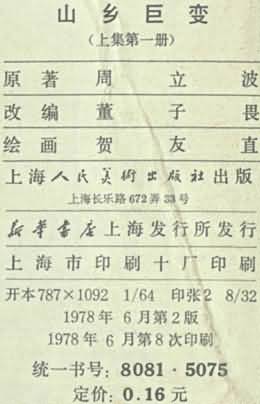 山乡巨变
（上集第一册）
原著 周立波
改编 董子畏
绘画 贺友直
上海人民美术出版社出版
上海长乐路672弄33号
新华书店上海发行所发行
上海市印刷十厂印刷
开本787×1092 1/64 印张2 8/32
1978年6月第2版
1978年6月第8次印刷
统一书号：8081·5075
定价：0.16元